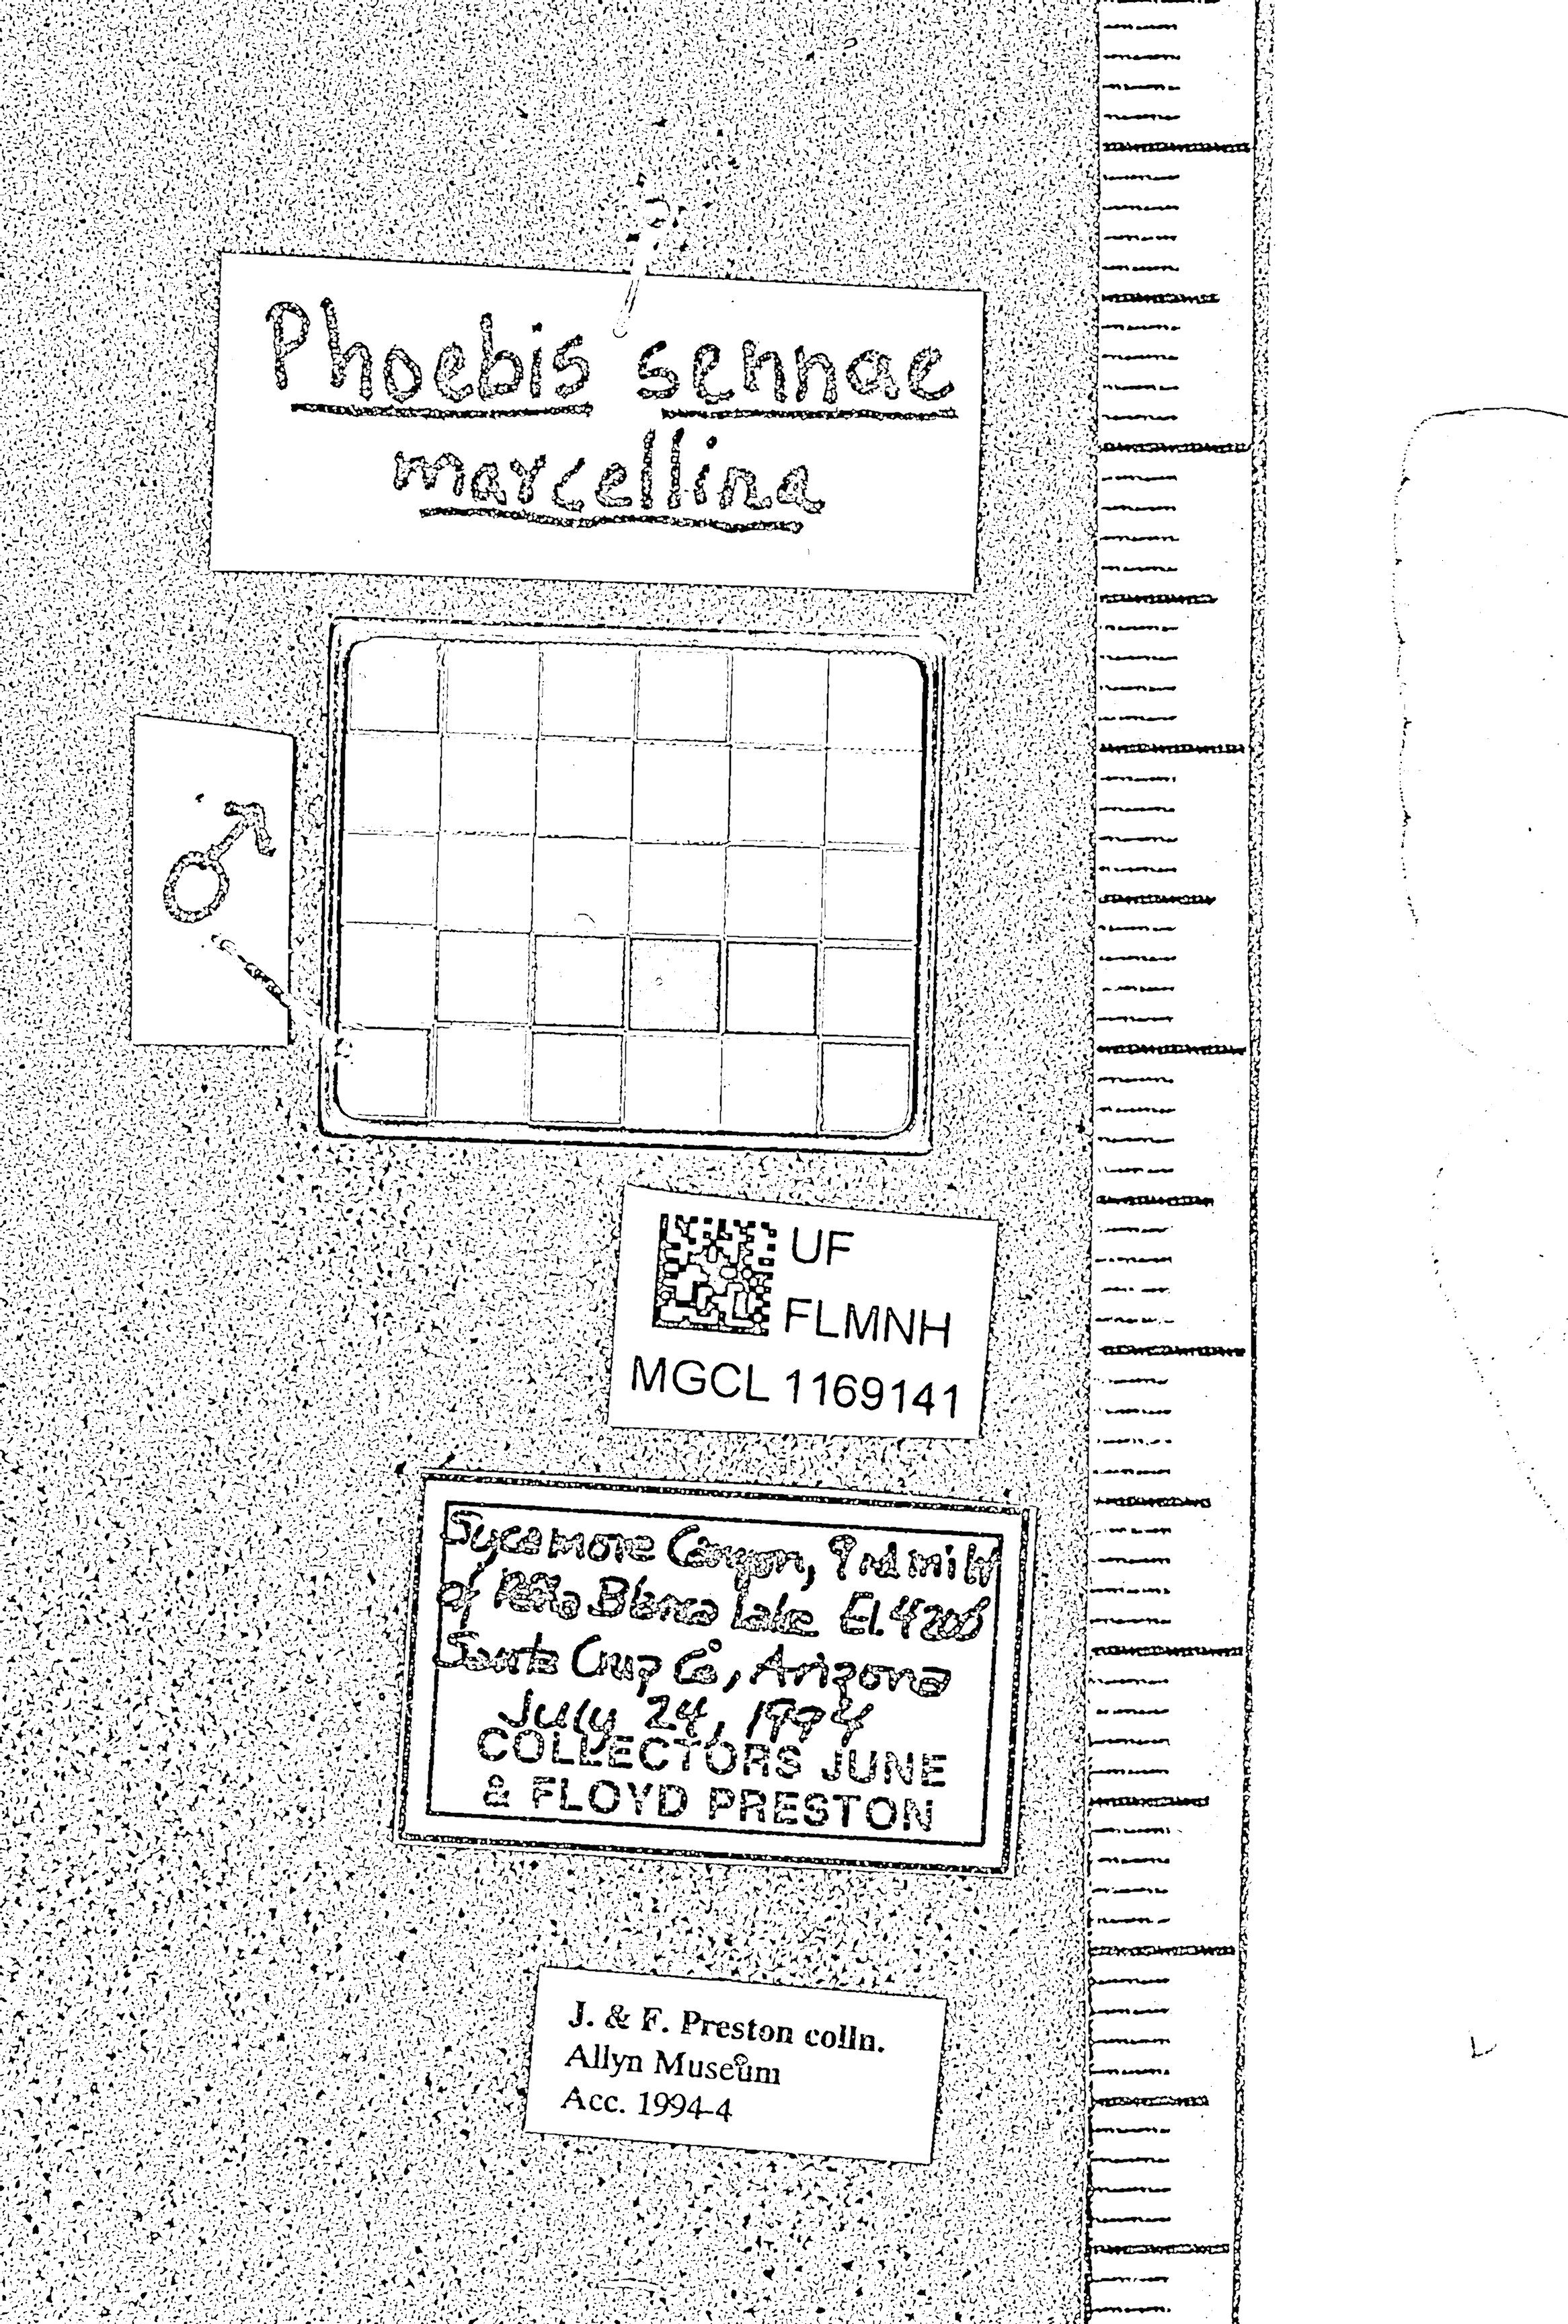 Phoebis sennae
marcellina
♂
UF
FLMNH
MGCL 1169141
Sycamore Canyon, 9 rd mi W
of Peña Blanca Lake El. 4200
Santa Cruz Co, Arizona
July 24, 1994
COLLECTORS JUNE
& FLOYD PRESTON
J. & F. Preston colln.
Allyn Museum
Acc. 1994-4